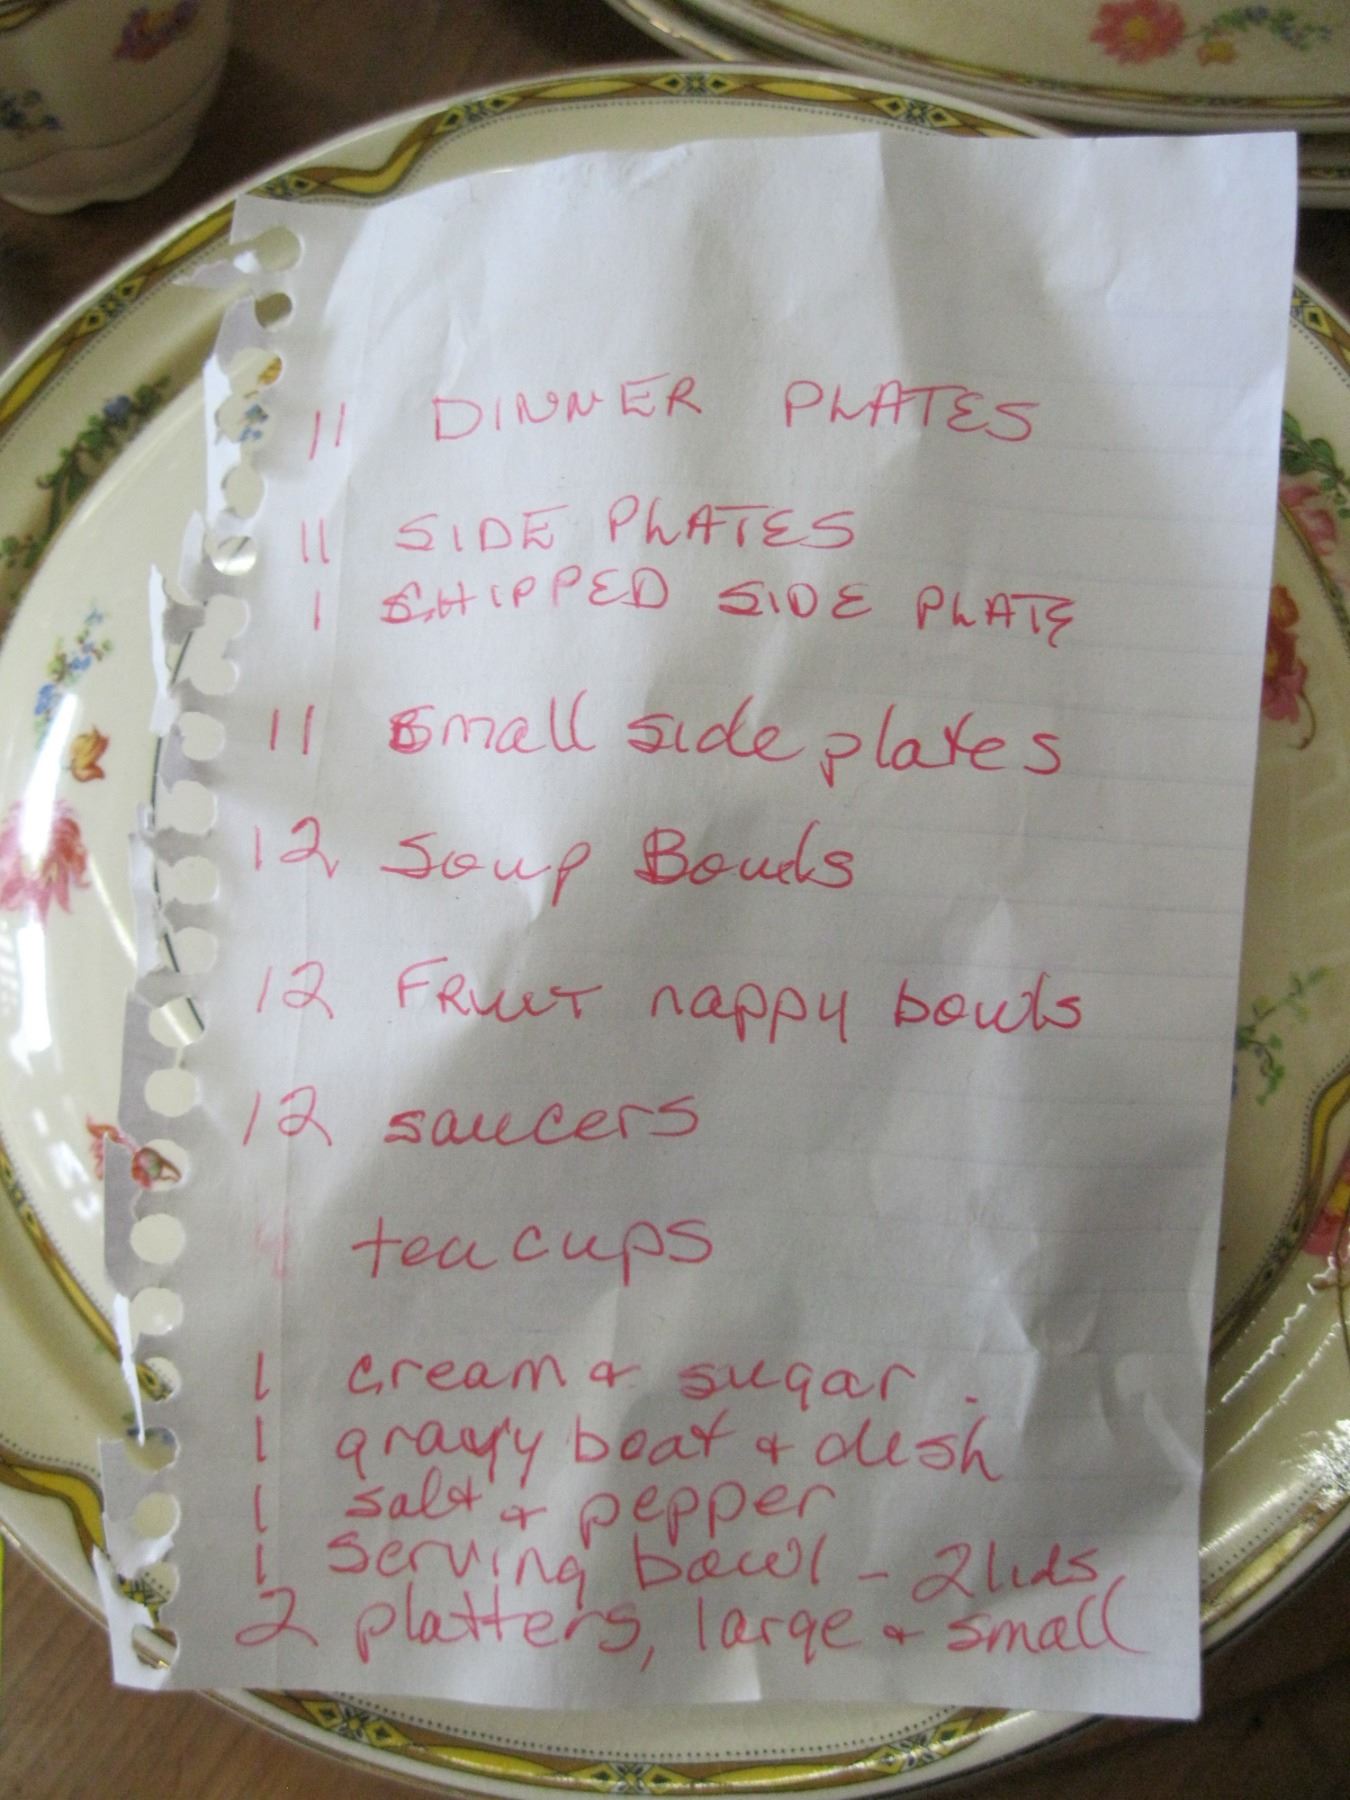 11 DINNER PLATES
11 SIDE PLATES
1 CHIPPED SIDE PLATE
11 small side plates
12 Soup Bowls
12 FRUIT nappy bowls
12 saucers
tea cups
1 cream & sugar
1 gravy boat & dish
1 salt & pepper
1 serving bowl - 2 lids
2 platters, large & small